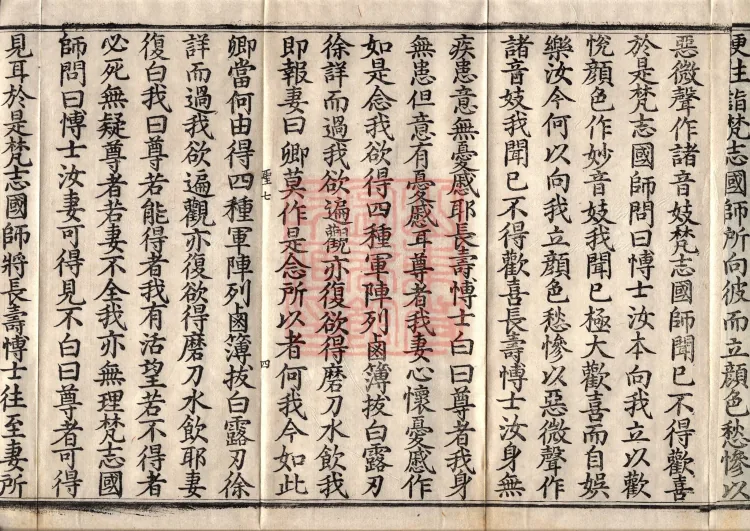 更往詣梵志國師所向彼而立顏色愁慘以
惡微聲作諸音妓梵志國師聞已不得歡喜
於是梵志國師問曰博士汝本向我立以歡
悅顏色作妙音妓我聞已極大歡喜而自娛
樂汝今何以向我立顏色愁慘以惡微聲作
諸音妓我聞已不得歡喜長壽博士汝身無
疾患意無憂慼耶長壽博士白曰尊者我身
無患但意有憂慼耳尊者我妻心懷憂慼作
如是念我欲得四種軍陣列鹵簿拔白露刃
徐詳而過我欲遍觀亦復欲得磨刀水飲我
即報妻曰卿莫作是念所以者何我今如此
聖七
四
卿當何由得四種軍陣列鹵簿拔白露刃徐
詳而過我欲遍觀亦復欲得磨刀水飲耶妻
復白我曰尊若能得者我有活望若不得者
必死無疑尊者若妻不全我亦無理梵志國
師問曰博士汝妻可得見不白曰尊者可得
見耳於是梵志國師將長壽博士往至妻所